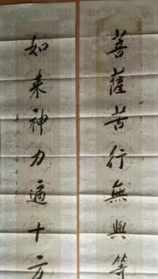 菩薩苦行無與等
如来神力遍十方